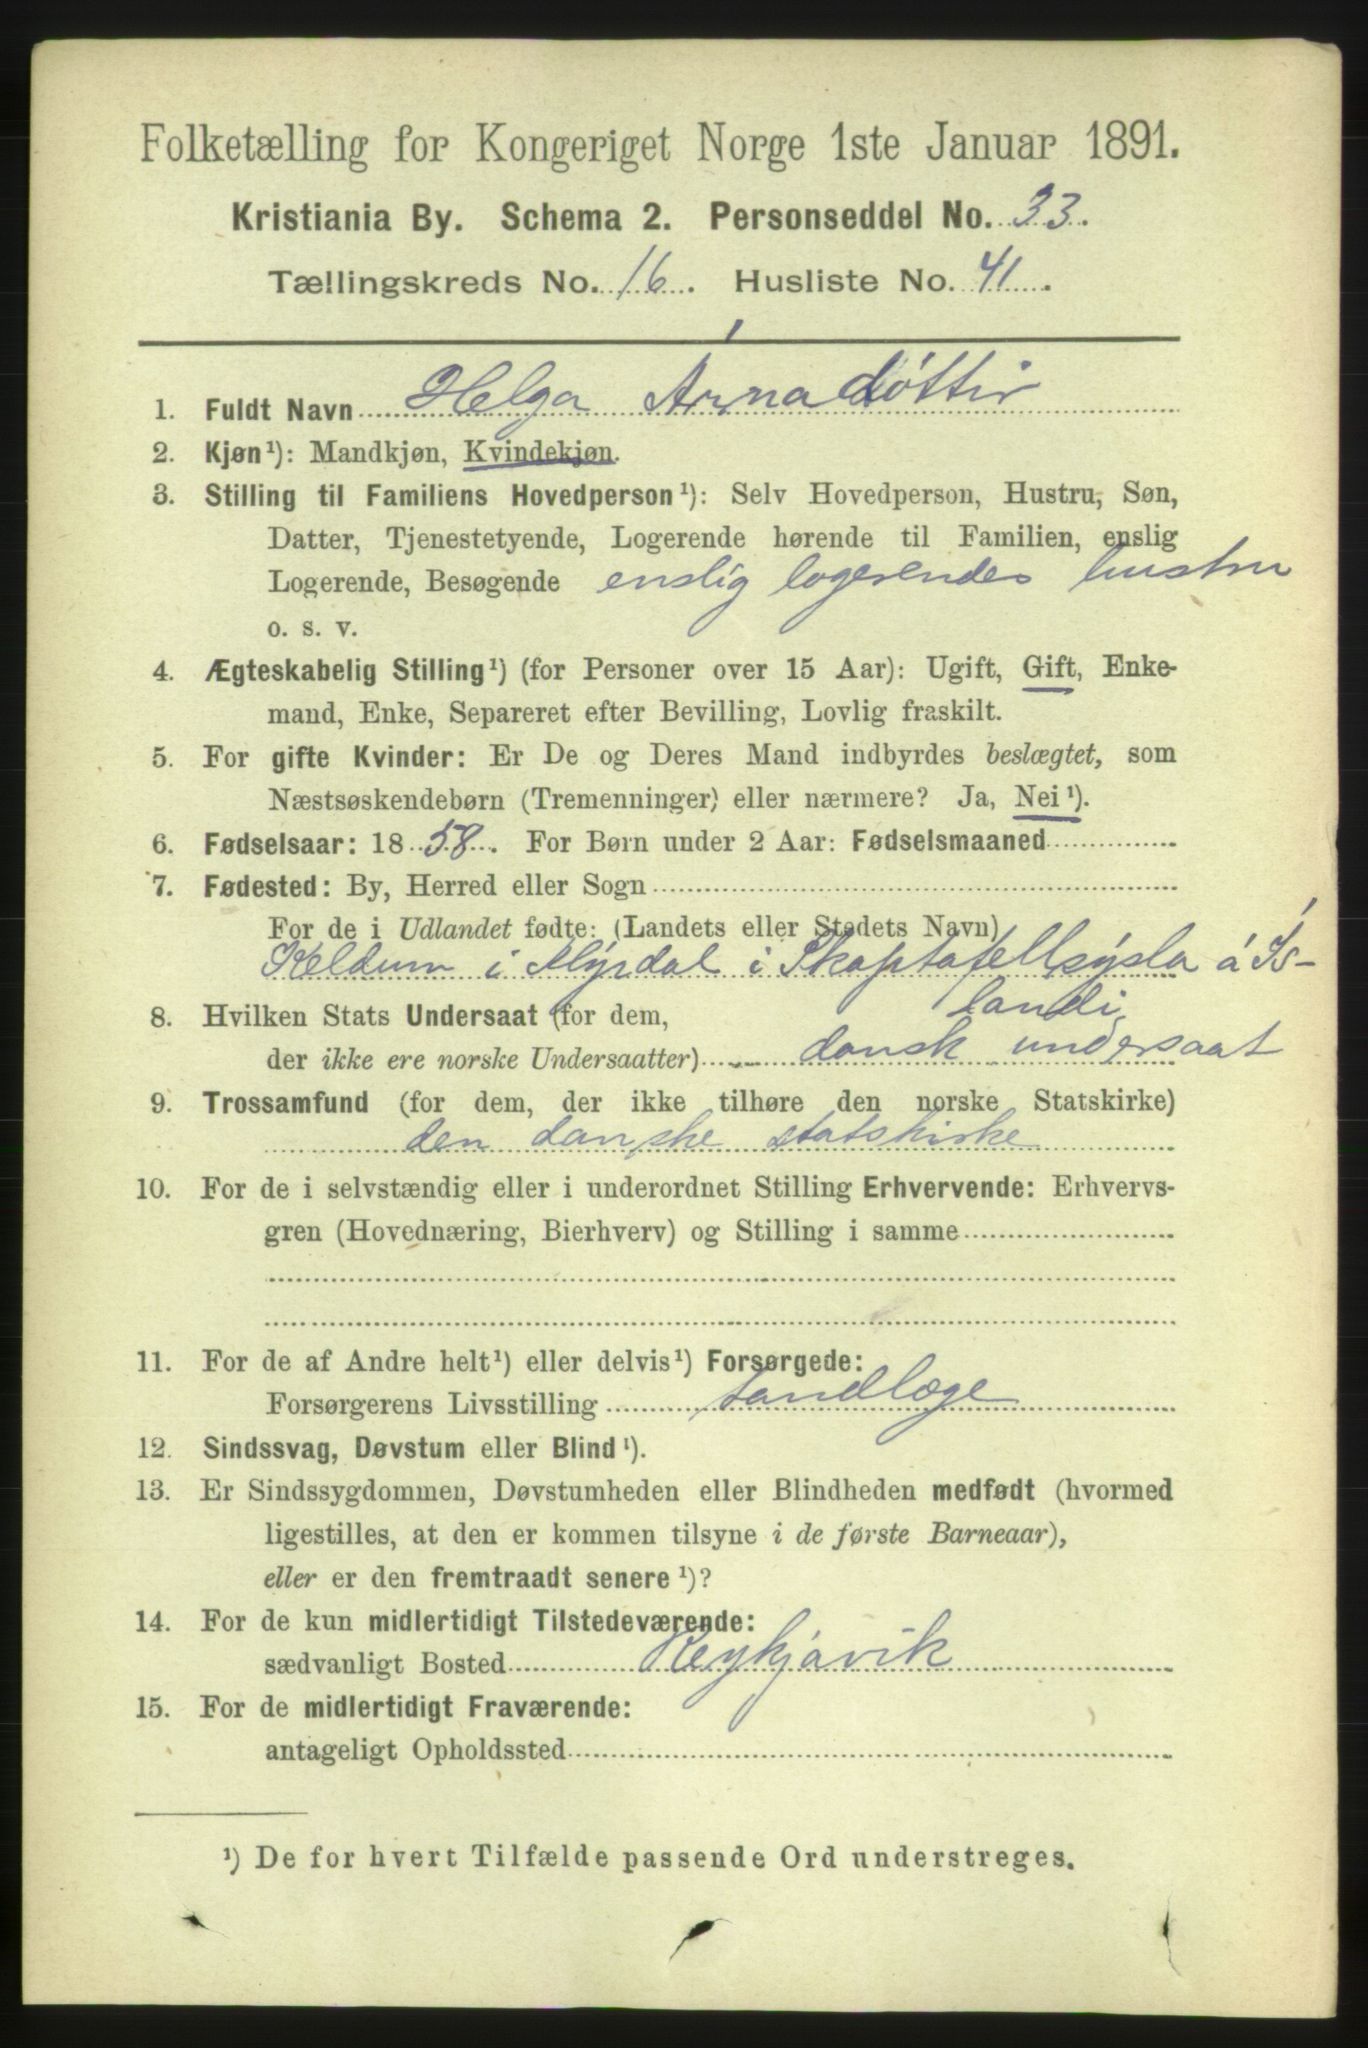 Folketælling for Kongeriget Norge 1ste Januar 1891.
Kristiania By. Schema 2. Personseddel No. 33.
Tællingskreds No. 16. Husliste No. 41.
1. Fuldt Navn Helga Árnadóttir
2. Kjøn¹): Mandkjøn, Kvindekjøn.
3. Stilling til Familiens Hovedperson¹): Selv Hovedperson, Hustru, Søn,
Datter, Tjenestetyende, Logerende hørende til Familien, enslig
Logerende, Besøgende enslig logerendes hustru
o. s. v.
4. Ægteskabelig Stilling¹) (for Personer over 15 Aar): Ugift, Gift, Enke-
mand, Enke, Separeret efter Bevilling, Lovlig fraskilt.
5. For gifte Kvinder: Er De og Deres Mand indbyrdes beslægtet, som
Næstsøskendebørn (Tremenninger) eller nærmere? Ja, Nei¹).
6. Fødselsaar: 1858. For Børn under 2 Aar: Fødselsmaaned
7. Fødested: By, Herred eller Sogn
For de i Udlandet fødte: (Landets eller Stedets Navn)
Keldum i Mýrdal i Skaptafellsýsla á Ís-
landi.
8. Hvilken Stats Undersaat (for dem,
der ikke ere norske Undersaatter) dansk undersaat
9. Trossamfund (for dem, der ikke tilhøre den norske Statskirke)
den danske statskirke
10. For de i selvstændig eller i underordnet Stilling Erhvervende: Erhvervs-
gren (Hovednæring, Bierhverv) og Stilling i samme
11. For de af Andre helt¹) eller delvis¹) Forsørgede:
Forsørgerens Livsstilling tandlæge
12. Sindssvag, Døvstum eller Blind¹).
13. Er Sindssygdommen, Døvstumheden eller Blindheden medfødt (hvormed
ligestilles, at den er kommen tilsyne i de første Barneaar),
eller er den fremtraadt senere¹)?
14. For de kun midlertidigt Tilstedeværende:
sædvanligt Bosted Reykjavik
15. For de midlertidigt Fraværende:
antageligt Opholdssted
¹) De for hvert Tilfælde passende Ord understreges.